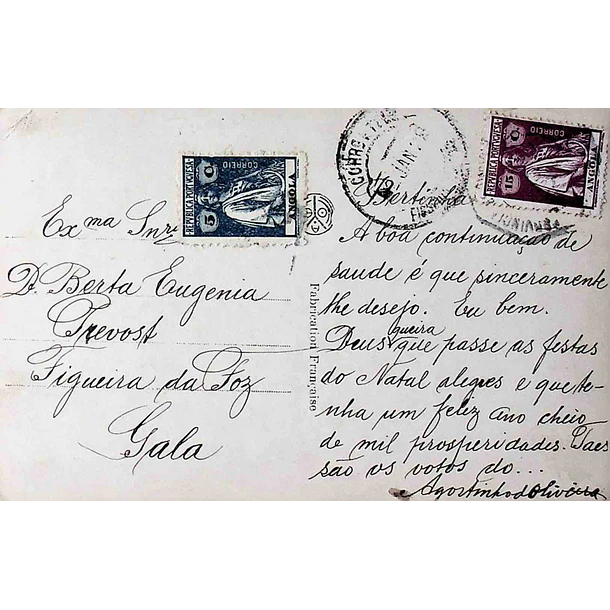 REPUBLICA PORTUGUESA
CORREIO
5 C
ANGOLA
REPUBLICA PORTUGUESA
CORREIO
15 C
ANGOLA
JAN
Exma Snra
D. Berta Eugenia
Trevost
Figueira da Foz
Gala
Fabrication Française
Berta
A boa continuação de
saude é que sinceramente
lhe desejo. Eu bem.
Deus queira que passe as festas
do Natal alegres e que te-
nha um feliz ano cheio
de mil prosperidades. Taes
são os votos do...
Agostinho d'Oliveira